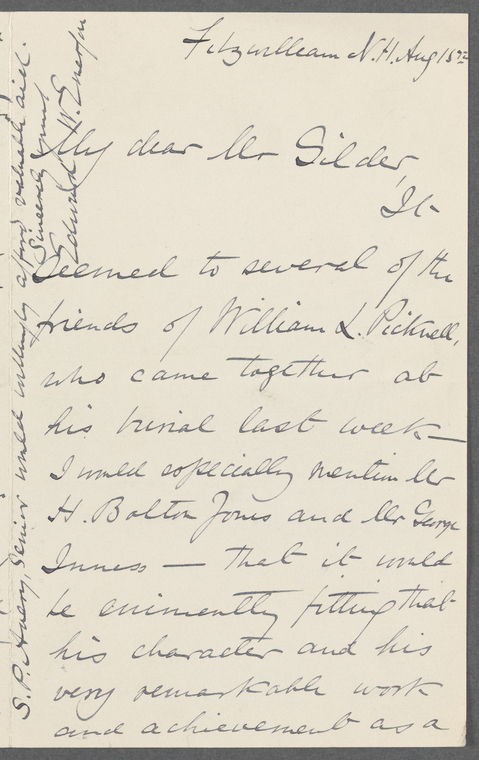 Fitzwilliam N.H. Aug 15
My dear Mr Gilder,
It
seemed to several of the
friends of William L. Picknell,
who came together at
his burial last week—
I would especially mention Mr
H. Bolton Jones and Mr George
Inness — that it would
be eminently fitting that
his character and his
very remarkable work
and achievement as a
S. P. Avery, Senior would willingly afford valuable aid.
Sincerely yours
Edward W. Emerson